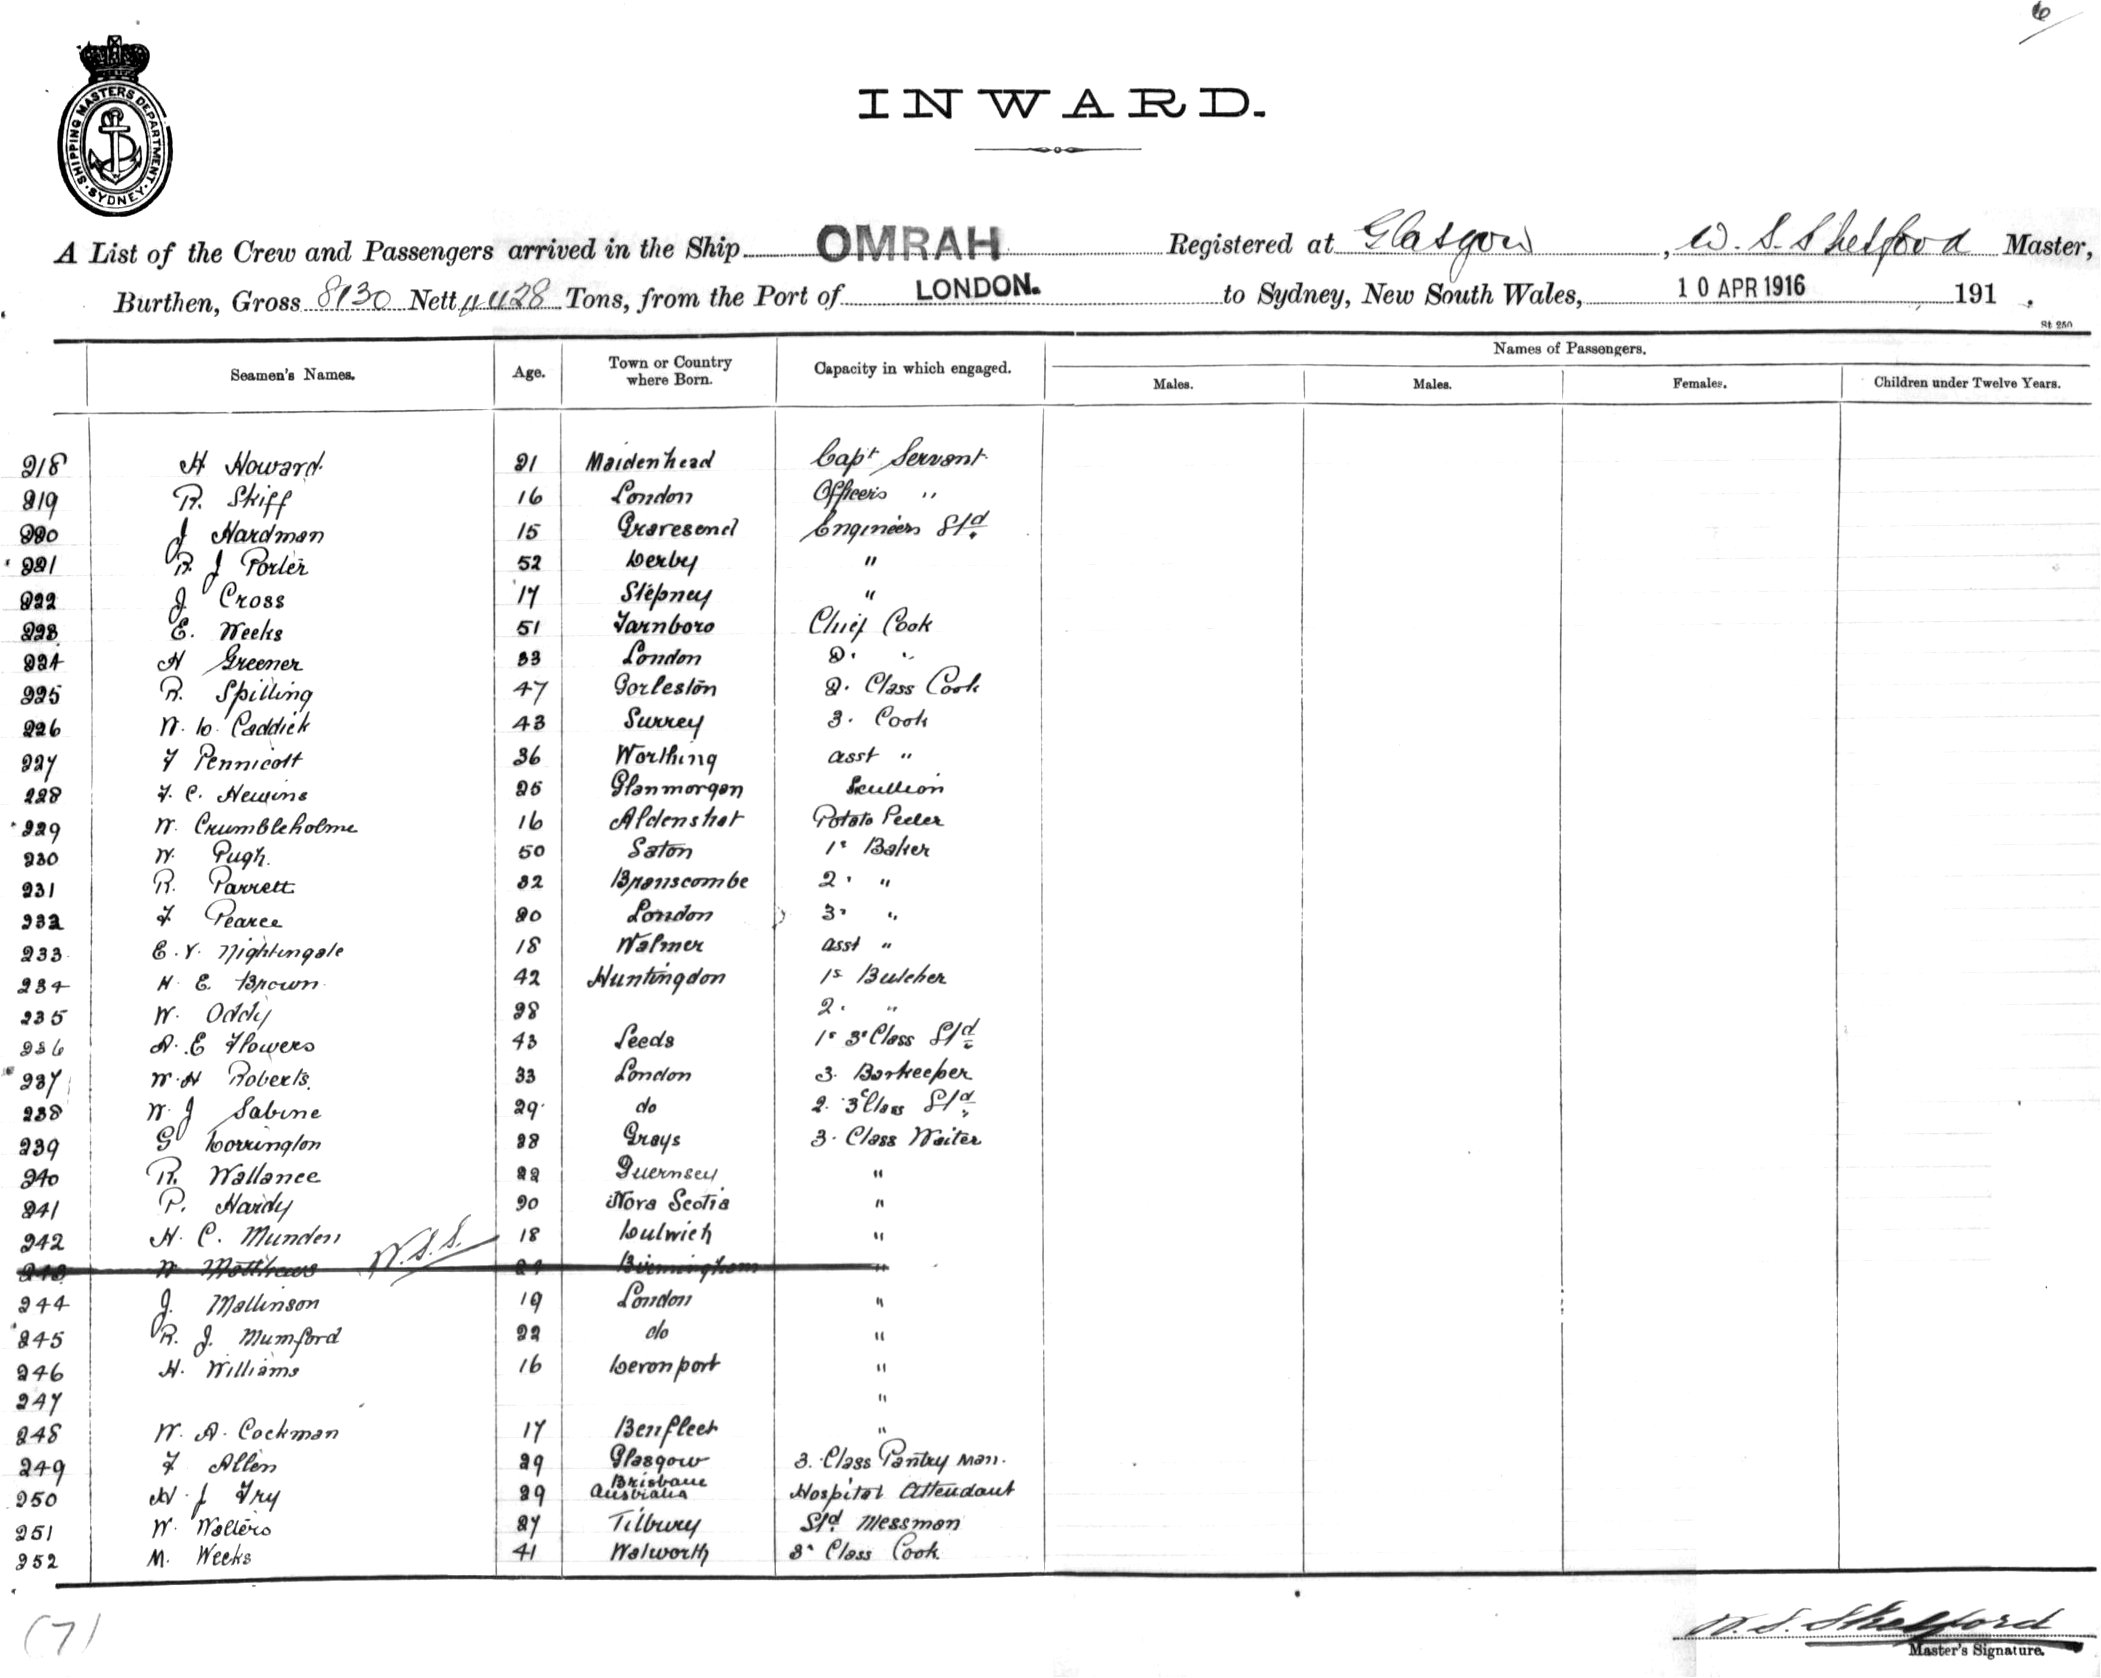 6
SHIPPING MASTERS DEPARTMENT. SYDNEY.
INWARD.
A List of the Crew and Passengers arrived in the Ship OMRAH Registered at Glasgow, W. S. Shelford Master,
Burthen, Gross 8130 Nett 4428 Tons, from the Port of LONDON. to Sydney, New South Wales, 10 APR 1916 191 .
St 250
Seamen's Names. Age. Town or Country where Born. Capacity in which engaged. Names of Passengers.
Males. Males. Females. Children under Twelve Years.
218 H Howard 21 Maidenhead Capt Servant
219 R. Skiff 16 London Officers "
220 J Hardman 15 Gravesend Engineers Std
221 R. J Porter 52 Derby "
222 J Cross 17 Stepney "
223 E. Weeks 51 Farnboro Chief Cook
224 H Greener 33 London 2. "
225 R. Spilling 47 Gorleston 2. Class Cook
226 W. D. Caddick 43 Surrey 3. Cook
227 F Pennicott 36 Worthing asst "
228 F. C. Hewins 25 Glanmorgan Scullion
229 W. Crumbleholme 16 Aldenshot Potato Peeler
230 W. Pugh. 50 Saton 1s Baker
231 R. Parrett 32 Branscombe 2. "
232 F Pearce 20 London 3. "
233 E. V. Nightingale 18 Walmer asst "
234 H. E. Brown 42 Huntingdon 1s Butcher
235 W. Oddy 28 2. "
236 A. E Flowers 43 Leeds 1s 3s Class Std
237 W. H Roberts. 33 London 3. Barkeeper
238 W. J Sabine 29 do 2. 3 Class Std
239 G Dorrington 28 Grays 3. Class Waiter
240 R. Wallance 22 Guernsey "
241 P. Hardy 20 Nova Scotia "
242 H. C. Munden 18 Dulwich "
243 W Matthews W.S.S. 21 Birmingham "
244 J. Mallinson 19 London "
245 R. J. Mumford 22 do "
246 H. Williams 16 Devonport "
247 "
248 W. A. Cockman 17 Benfleet "
249 F Allen 29 Glasgow 3. Class Pantry Man.
250 H. J Fry 29 Brisbane Australia Hospital Attendant
251 W. Walters 27 Tilbury Std Messman
252 M. Weeks 41 Walworth 3. Class Cook
(7)
W. S. Shelford
Master's Signature.